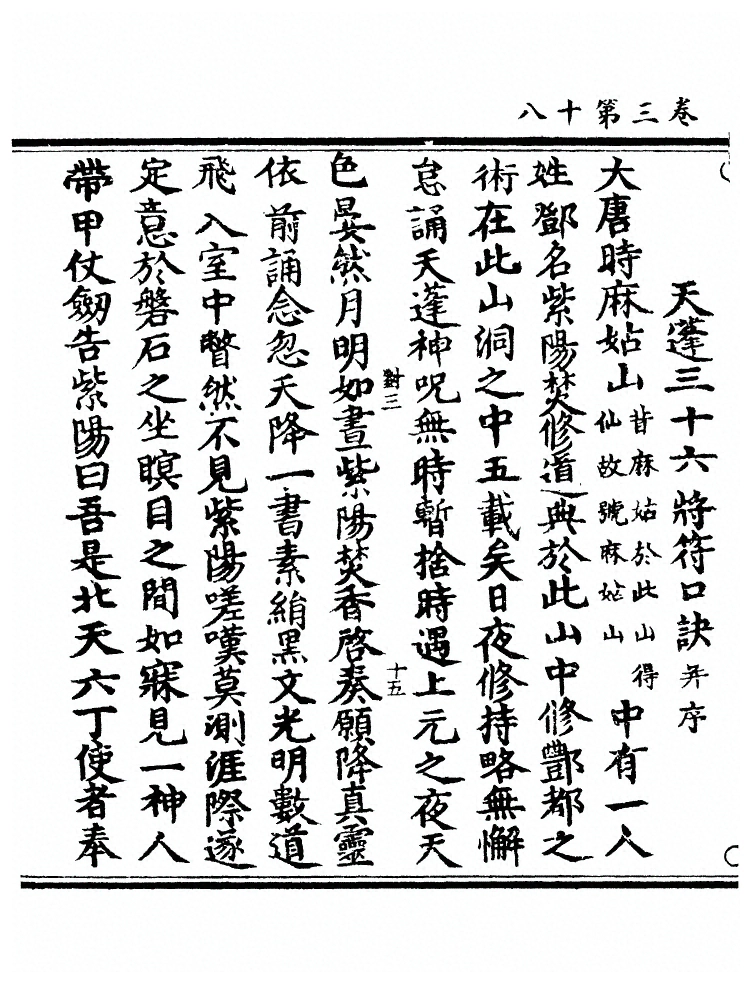 卷三第十八
天蓬三十六將符口訣并序
大唐時麻姑山昔麻姑於此山得仙故號麻姑山中有一人
姓鄧名紫陽焚修道典於此山中修酆都之
術在此山洞之中五載矣日夜修持略無懈
怠誦天蓬神呪無時暫捨時遇上元之夜天
對三
十五
色晏然月明如晝紫陽焚香啓奏願降真靈
依前誦念忽天降一書素絹黑文光明數道
飛入室中瞥然不見紫陽嗟嘆莫測涯際遂
定意於磐石之坐瞑目之間如寐見一神人
帶甲仗劒告紫陽曰吾是北天六丁使者奉